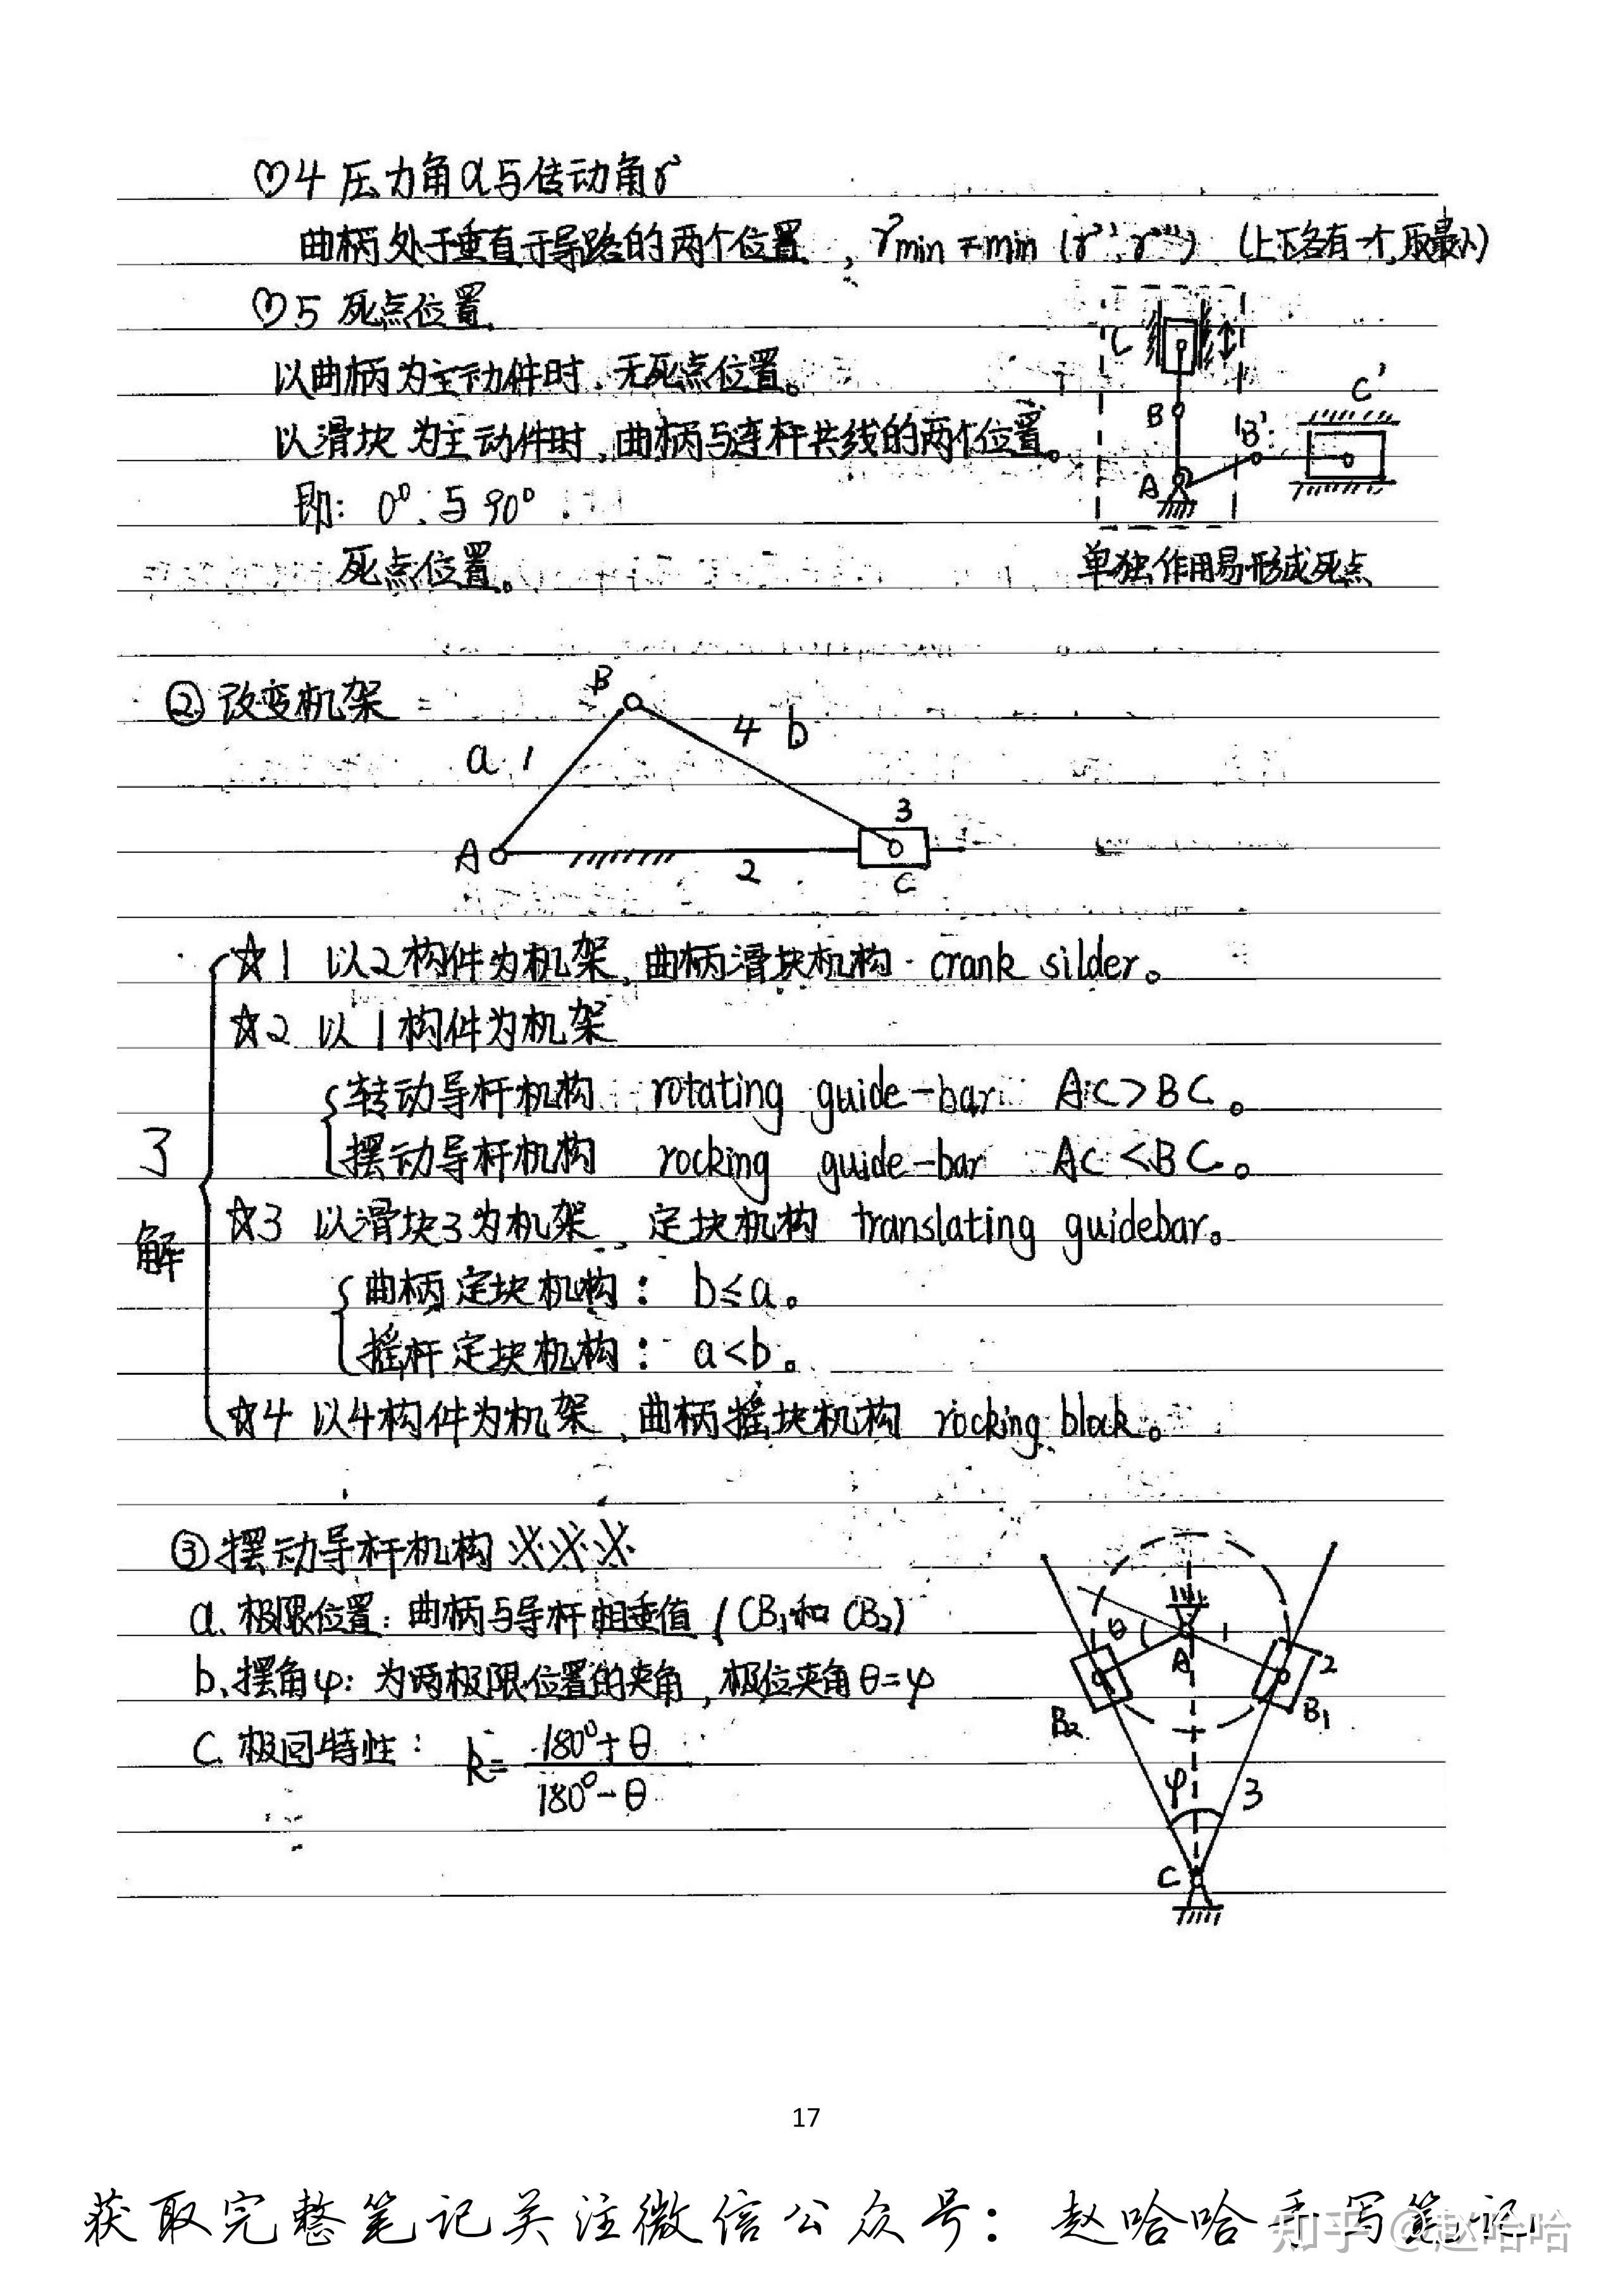 ♡4 压力角α与传动角γ
曲柄处于垂直于导路的两个位置, γmin = min (γ', γ'') (上下各有一个,取最小)
♡5 死点位置
以曲柄为主动件时,无死点位置。
以滑块为主动件时,曲柄与连杆共线的两个位置。
即: 0°与90°
死点位置。
C
B
A
B'
C'
单独作用易形成死点
② 改变机架
B
a 1
4 b
A
2
3
C
3解
☆1 以2构件为机架,曲柄滑块机构 crank silder。
☆2 以1构件为机架
转动导杆机构 rotating guide-bar AC>BC。
摆动导杆机构 rocking guide-bar AC<BC。
☆3 以滑块3为机架,定块机构 translating guidebar。
曲柄定块机构: b≤a。
摇杆定块机构: a<b。
☆4 以4构件为机架,曲柄摇块机构 rocking block。
③摆动导杆机构 ※※※
a. 极限位置: 曲柄与导杆相垂值 (CB₁和CB₂)
b. 摆角φ: 为两极限位置的夹角, 极位夹角θ=φ
C. 极回特性: k= (180°+θ)/(180°-θ)
θ
1
A
2
B₂
B₁
φ
3
C
17
获取完整笔记关注微信公众号: 赵哈哈手写笔记
知乎 @赵哈哈